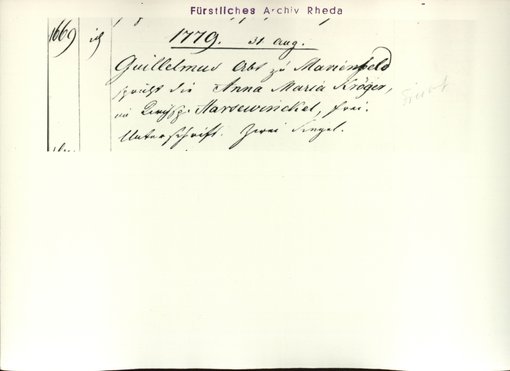 Fürstliches Archiv Rheda
1669
1779. 31 Aug.
Guillelmus Abt zu Marienfeld
spricht die Anna Maria Kröger,
im Kirchsp. Harsewinckel, frei.
Unterschrift. Zwei Siegel.